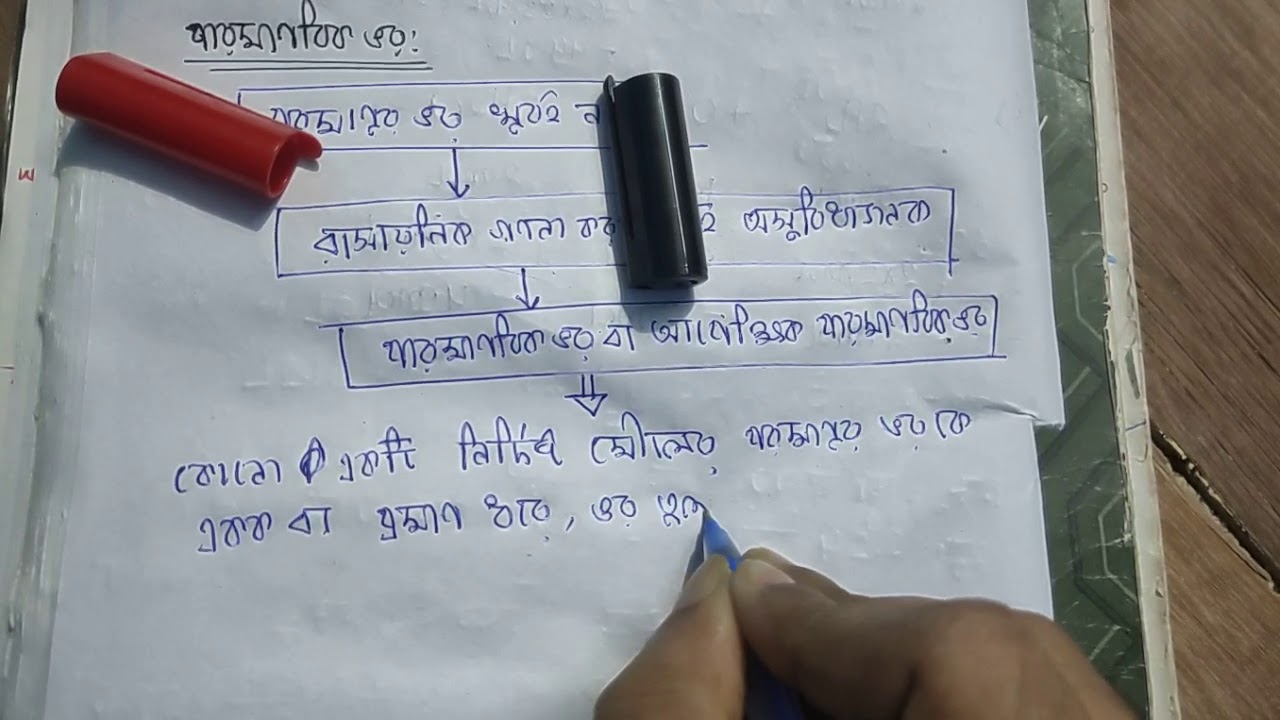 পারমাণবিক ভর:
পরমাণুর ভর খুবই
রাসায়নিক গণনা অসুবিধাজনক
পারমাণবিক ভর বা আপেক্ষিক পারমাণবিক ভর
কোনো একটি নির্দিষ্ট মৌলের পরমাণুর ভর কে
একক বা প্রমাণ ধরে, ভর